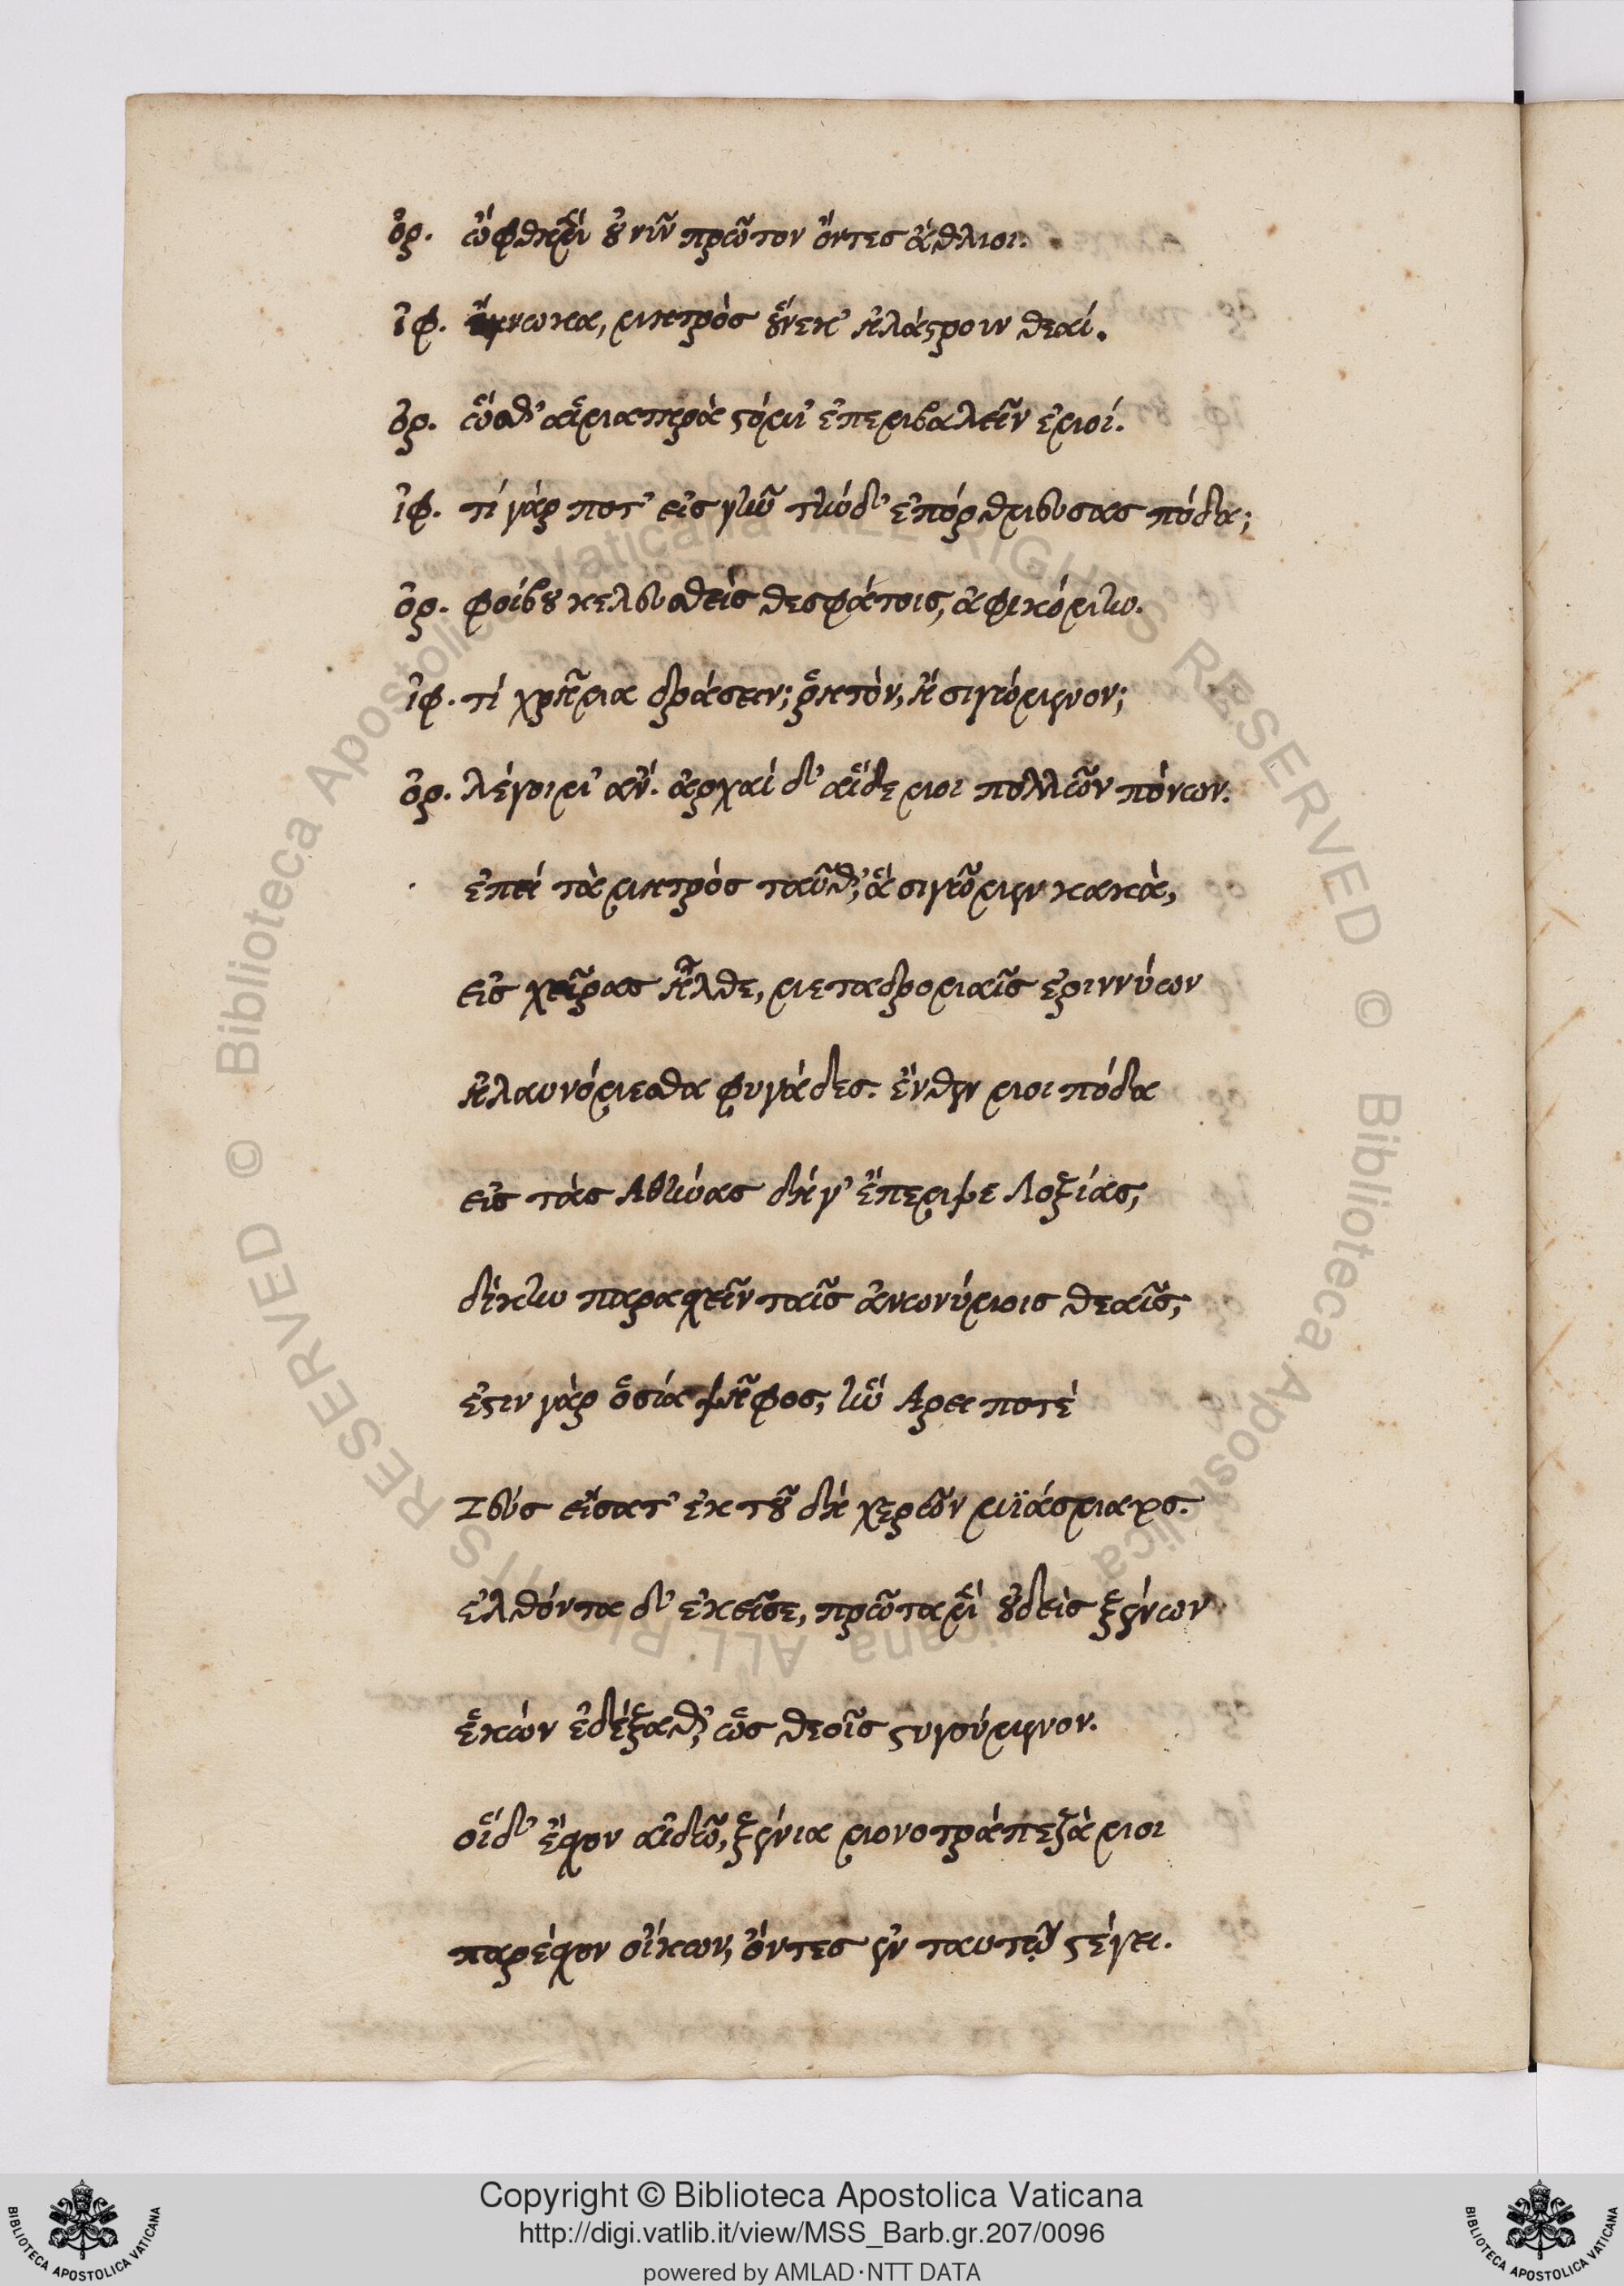 ὀρ. ὤφθημεν οὐ νῦν πρῶτον ὄντες ἄθλιοι.
ἰφ. ἔγνωκα, μητρὸς οὕνεκ' ἠλάστρουν θεαί.
ὀρ. ὥσθ' αἱματηρὰ στόμι' ἐπεμβαλεῖν ἐμοί.
ἰφ. τί γάρ ποτ' εἰς γῆν τήνδ' ἐπόρθμευσας πόδα;
ὀρ. φοίβου κελευσθεὶς θεσφάτοις, ἀφικόμην.
ἰφ. τί χρῆμα δράσειν; ῥητὸν, ἢ σιγώμενον;
ὀρ. λέγοιμ' ἄν. ἀρχαὶ δ' αἵδε μοι πολλῶν πόνων.
ἐπεὶ τὰ μητρὸς ταῦθ', ἃ σιγῶμεν κακὰ,
εἰς χεῖρας ἦλθε, μεταδρομαῖς ἐριννύων
ἠλαυνόμεσθα φυγάδες. ἔνθεν μοι πόδα
εἰς τὰς Ἀθήνας δή γ' ἔπεμψε Λοξίας,
δίκην παρασχεῖν ταῖς ἀνωνύμοις θεαῖς,
ἔστιν γὰρ ὁσία ψῆφος, ἣν Ἄρει ποτὲ
Ζεὺς εἵσατ' ἐκ του δὴ χερῶν μιάσματος.
ἐλθόντα δ' ἐκεῖσε, πρῶτα μ' οὐδεὶς ξένων
ἑκὼν ἐδέξαθ', ὡς θεοῖς στυγούμενον.
οἳ δ' ἔσχον αἰδῶ, ξένια μονοτράπεζά μοι
παρέσχον οἴκων, ὄντες ἐν ταυτῷ στέγει.
Copyright © Biblioteca Apostolica Vaticana
http://digi.vatlib.it/view/MSS_Barb.gr.207/0096
powered by AMLAD·NTT DATA